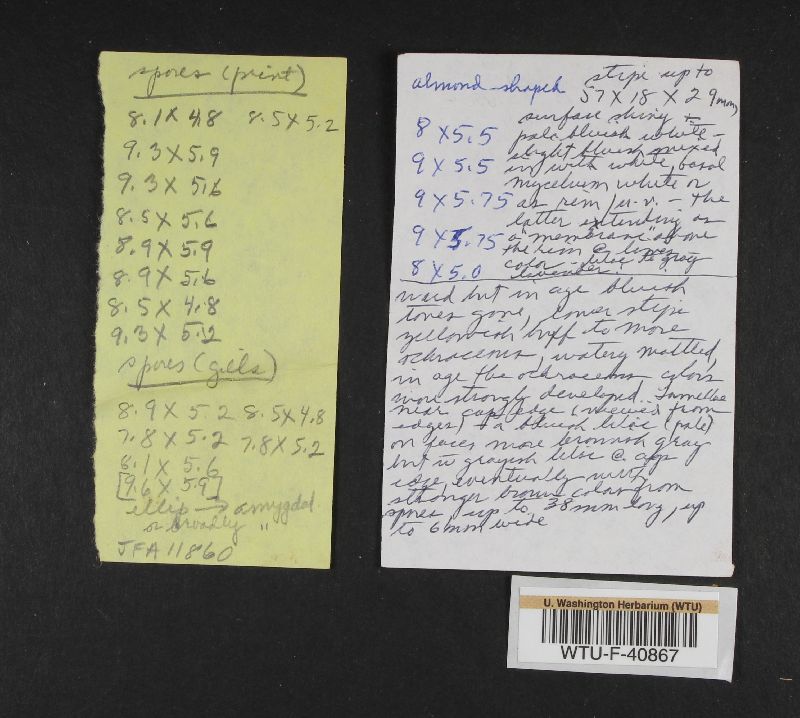 spores (print)
8.1 X 4.8 8.5 X 5.2
9.3 X 5.9
9.3 X 5.6
8.5 X 5.6
8.9 X 5.9
8.9 X 5.6
8.5 X 4.8
9.3 X 5.2
spores (gills)
8.9 X 5.2 8.5 X 4.8
7.8 X 5.2 7.8 X 5.2
8.1 X 5.6
[9.6 X 5.9]
ellip → amygdal.
or broadly "
JFA 11860
almond-shaped
8 X 5.5
9 X 5.5
9 X 5.75
9 X 5.75
8 X 5.0
stipe up to
57 X 18 X 29mm,
surface shiny ±
pale bluish white –
slight bluish mixed
in with white, basal
mycelium white or
as rim /u.v. – the
latter extending as
a "membrane" above
the rim @
color – lilac to gray
lavender!
but in age bluish
tones gone, lower stipe
yellowish buff to more
ochraceous, watery mottled,
in age the ochraceous colors
more strongly developed. Lamellae
near cap edge (viewed from
edges) ± a bluish lilac (pale)
on faces more brownish gray
but w grayish lilac @ cap
edge, eventually with
stronger brown color from
spores, up to 38mm long, up
to 6mm wide
U. Washington Herbarium (WTU)
WTU-F-40867